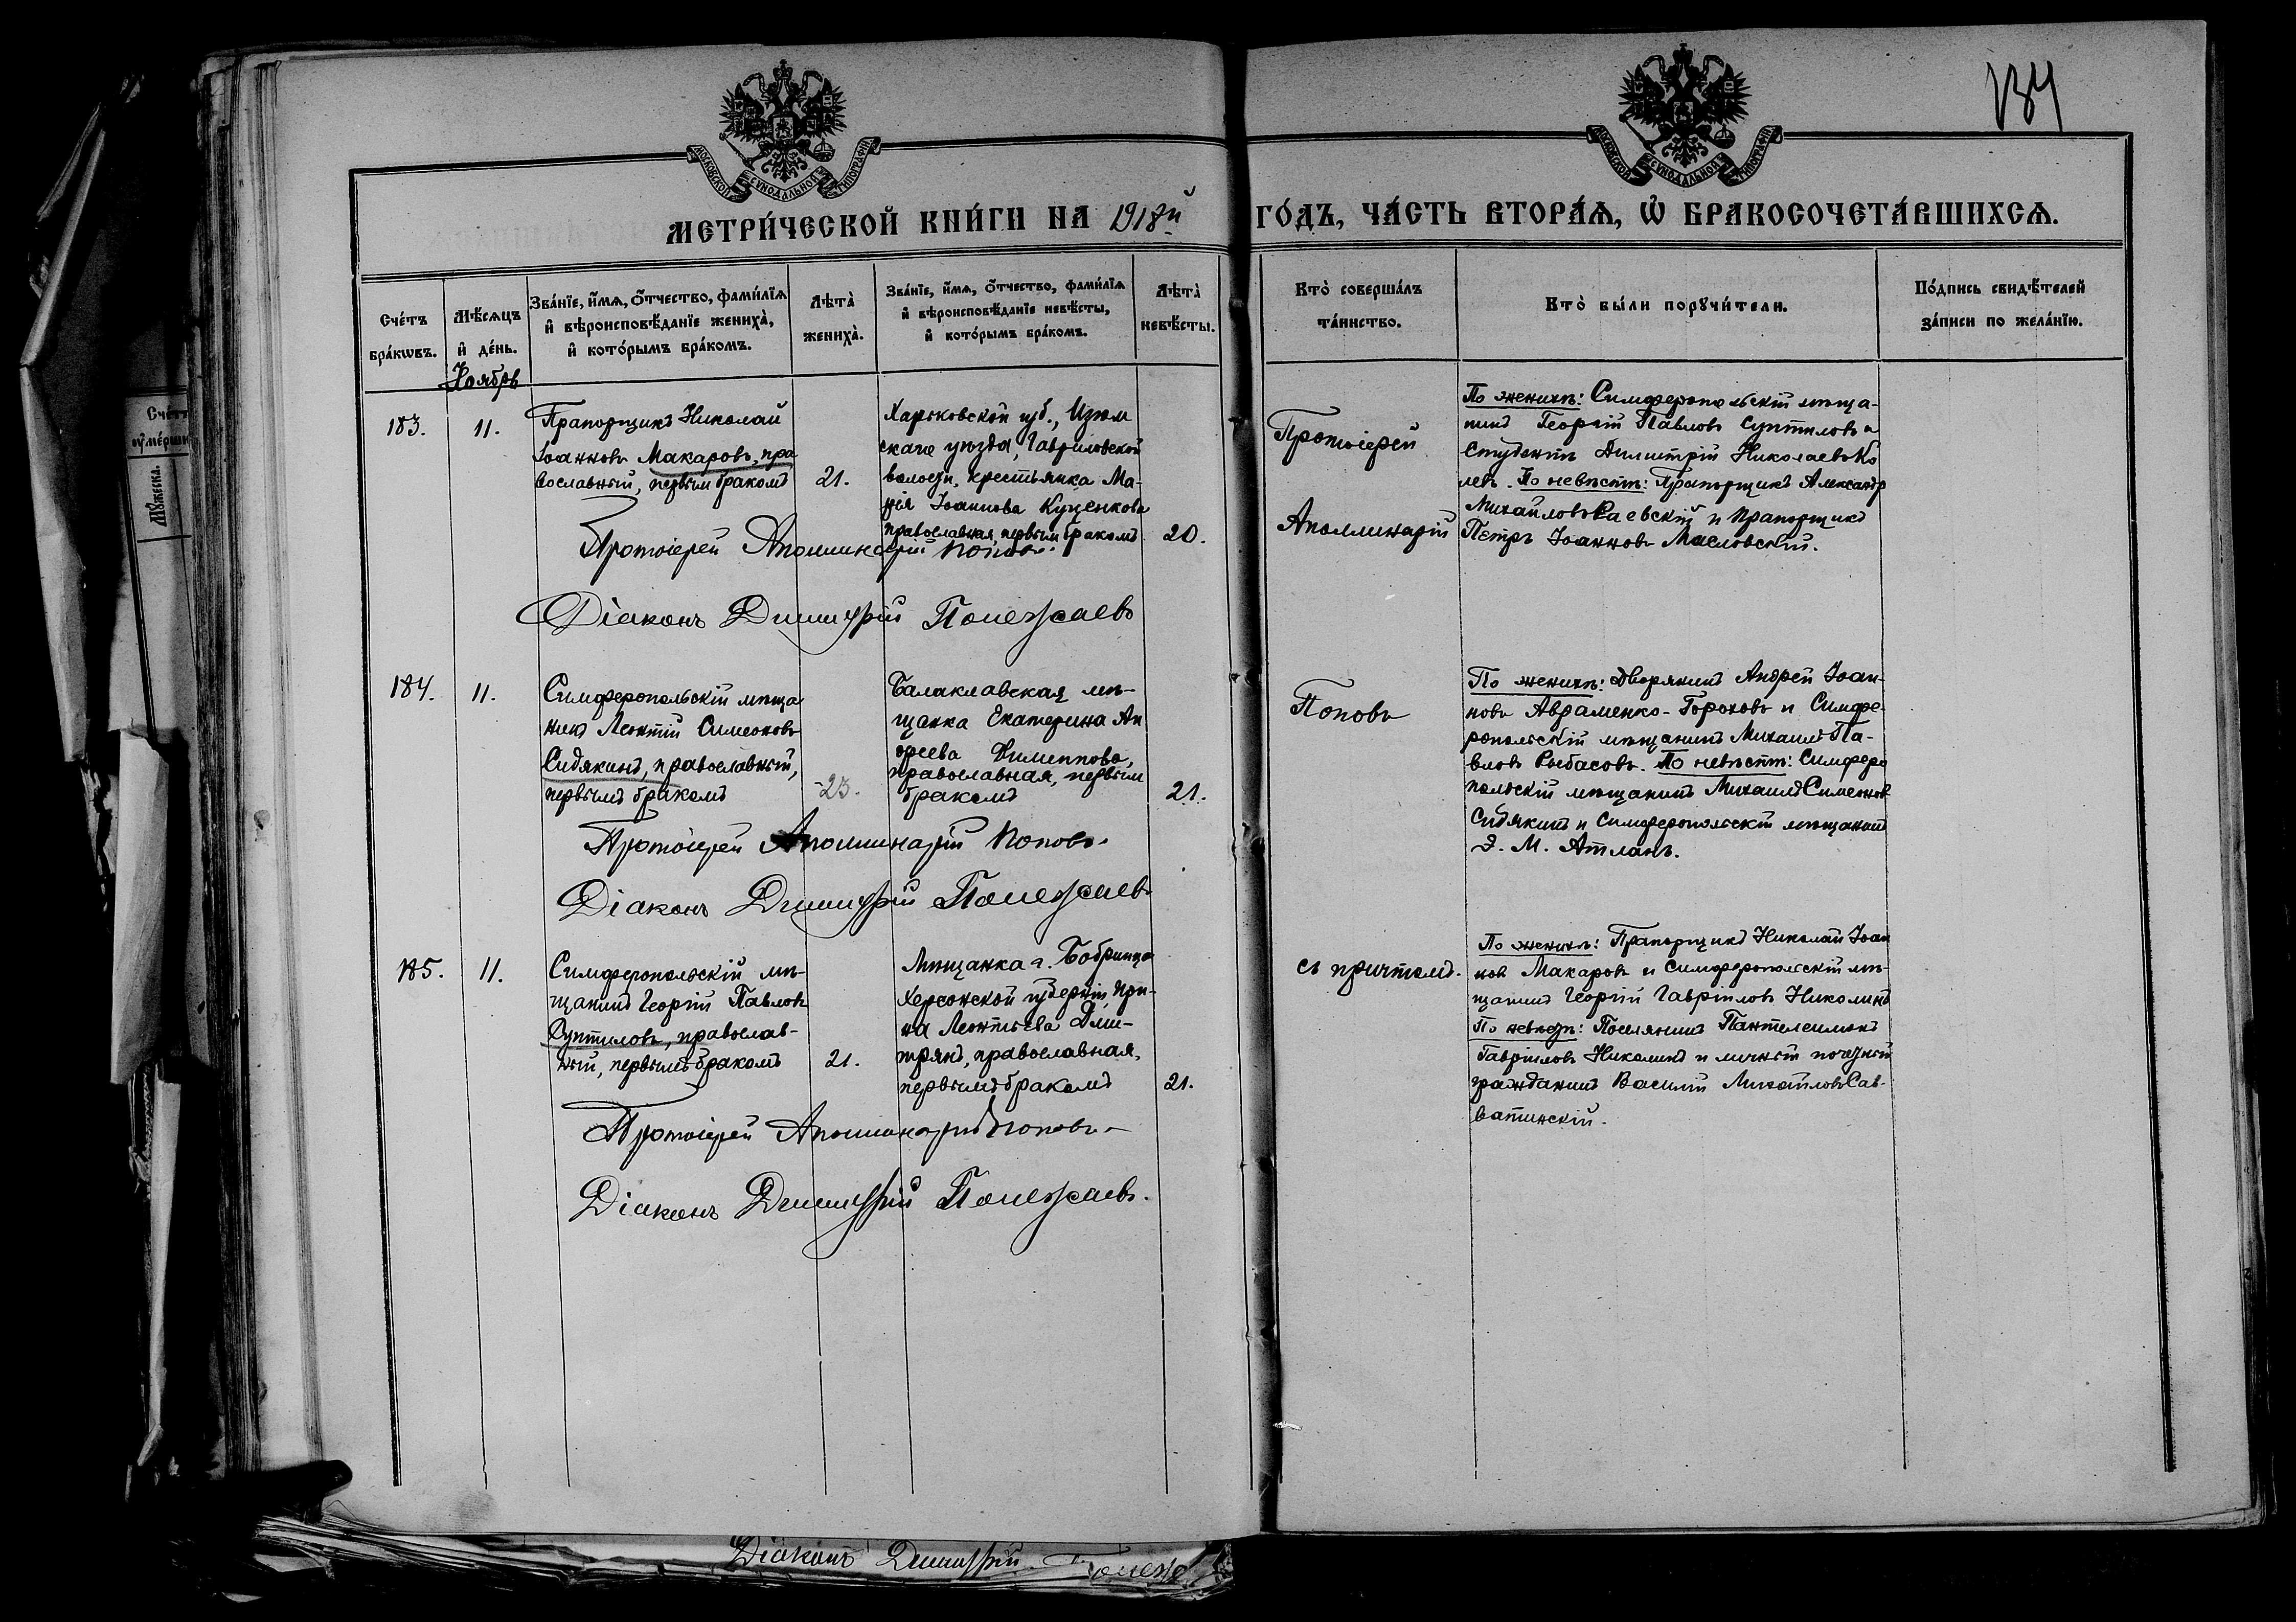 134
МОСКОВСКОЙ СѴНОДАЛЬНОЙ ТИПОГРАФІИ
МОСКОВСКОЙ СѴНОДАЛЬНОЙ ТИПОГРАФІИ
МЕТРИ́ЧЕСКОЙ КНИ́ГИ НА 1918й ГО́ДЪ, ЧА́СТЬ ВТОРА́Ѧ, Ѡ҆ БРАКОСОЧЕТА́ВШИХСѦ.
Сче́тъ бра́кѡвъ.
Мѣ́сѧцъ и҆ де́нь.
Зва́нїе, и҆́мѧ, ѻ҆́тчество, фамѝлїѧ
и҆ вѣроисповѣ́данїе жениха̀,
и҆ кото́рымъ бра́комъ.
Лѣта̀ жениха̀.
Зва́нїе, и҆́мѧ, ѻ҆́тчество, фами́лїѧ
и҆ вѣроисповѣ́данїе невѣ́сты,
и҆ кото́рымъ бра́комъ.
Лѣта̀ невѣ́сты.
Кто̀ соверша́лъ та́инство.
Кто̀ бы́ли порꙋчи́тели.
По́дпись свидѣ́телей
за́писи по жела́нїю.
Ноябрь
183.
11.
Прапорщикъ Николай
Іоанновъ Макаровъ, пра
вославный, первым бракомъ
21.
Харьковской губ., Изюм
скаго уѣзда, Гавриловской
волости, крестьянка Ма-
рія Іоаннова Куценкова
православная, первым бракомъ
20.
Протоіерей
Аполлинарій
По женихѣ: Симферопольскій мѣща-
нинъ Георгій Павловъ Суптиловъ и
студентъ Димитрій Николаевъ Ко
левъ. По невѣстѣ: Прапорщикъ Александр
Михайловъ Раевскій и прапорщикъ
Петръ Іоанновъ Масловскій.
Протоіерей Аполлинарій Поповъ.
Діаконъ Димитрій Полежаевъ
184.
11.
Симферопольскій мѣща
нинъ Леонтій Симеоновъ
Сидякинъ, православный,
первымъ бракомъ
23.
Балаклавская мѣ-
щанка Екатерина Ан
дреева Филиппова,
православная, первым
бракомъ
21.
Поповъ
По женихѣ: Дворянинъ Андрей Іоан-
новъ Авраменко-Гороховъ и Симфе-
ропольскій мѣщанинъ Михаилъ Па-
вловъ Рыбасовъ. По невѣстѣ: Симферо
польскій мѣщанинъ Михаилъ Симеонов
Сидякинъ и Симферопольскій мѣщанинъ
Э. М. Атланъ.
Протоіерей Аполлинарій Поповъ.
Діаконъ Димитрій Полежаевъ
185.
11.
Симферопольскій мѣ-
щанинъ Георгій Павловъ
Суптиловъ, православ-
ный, первымъ бракомъ
21.
Мѣщанка г. Бобринца
Херсонской губерніи, Ири-
на Леонтьева Дми-
трянъ, православная,
первымъ бракомъ
21.
съ причтомъ.
По женихѣ: Прапорщикъ Николай Іоан
нов Макаровъ и Симферопольскій мѣ-
щанинъ Георгій Гавріиловъ Николинъ
По невѣстѣ: Поселянинъ Пантелеимонъ
Гавріиловъ Николинъ и личный почетный
гражданинъ Василій Михайловъ Сав-
ватинскій.
Протоіерей Аполлинарій Поповъ
Діаконъ Димитрій Полежаевъ.
Діаконъ Димитрій Полежа